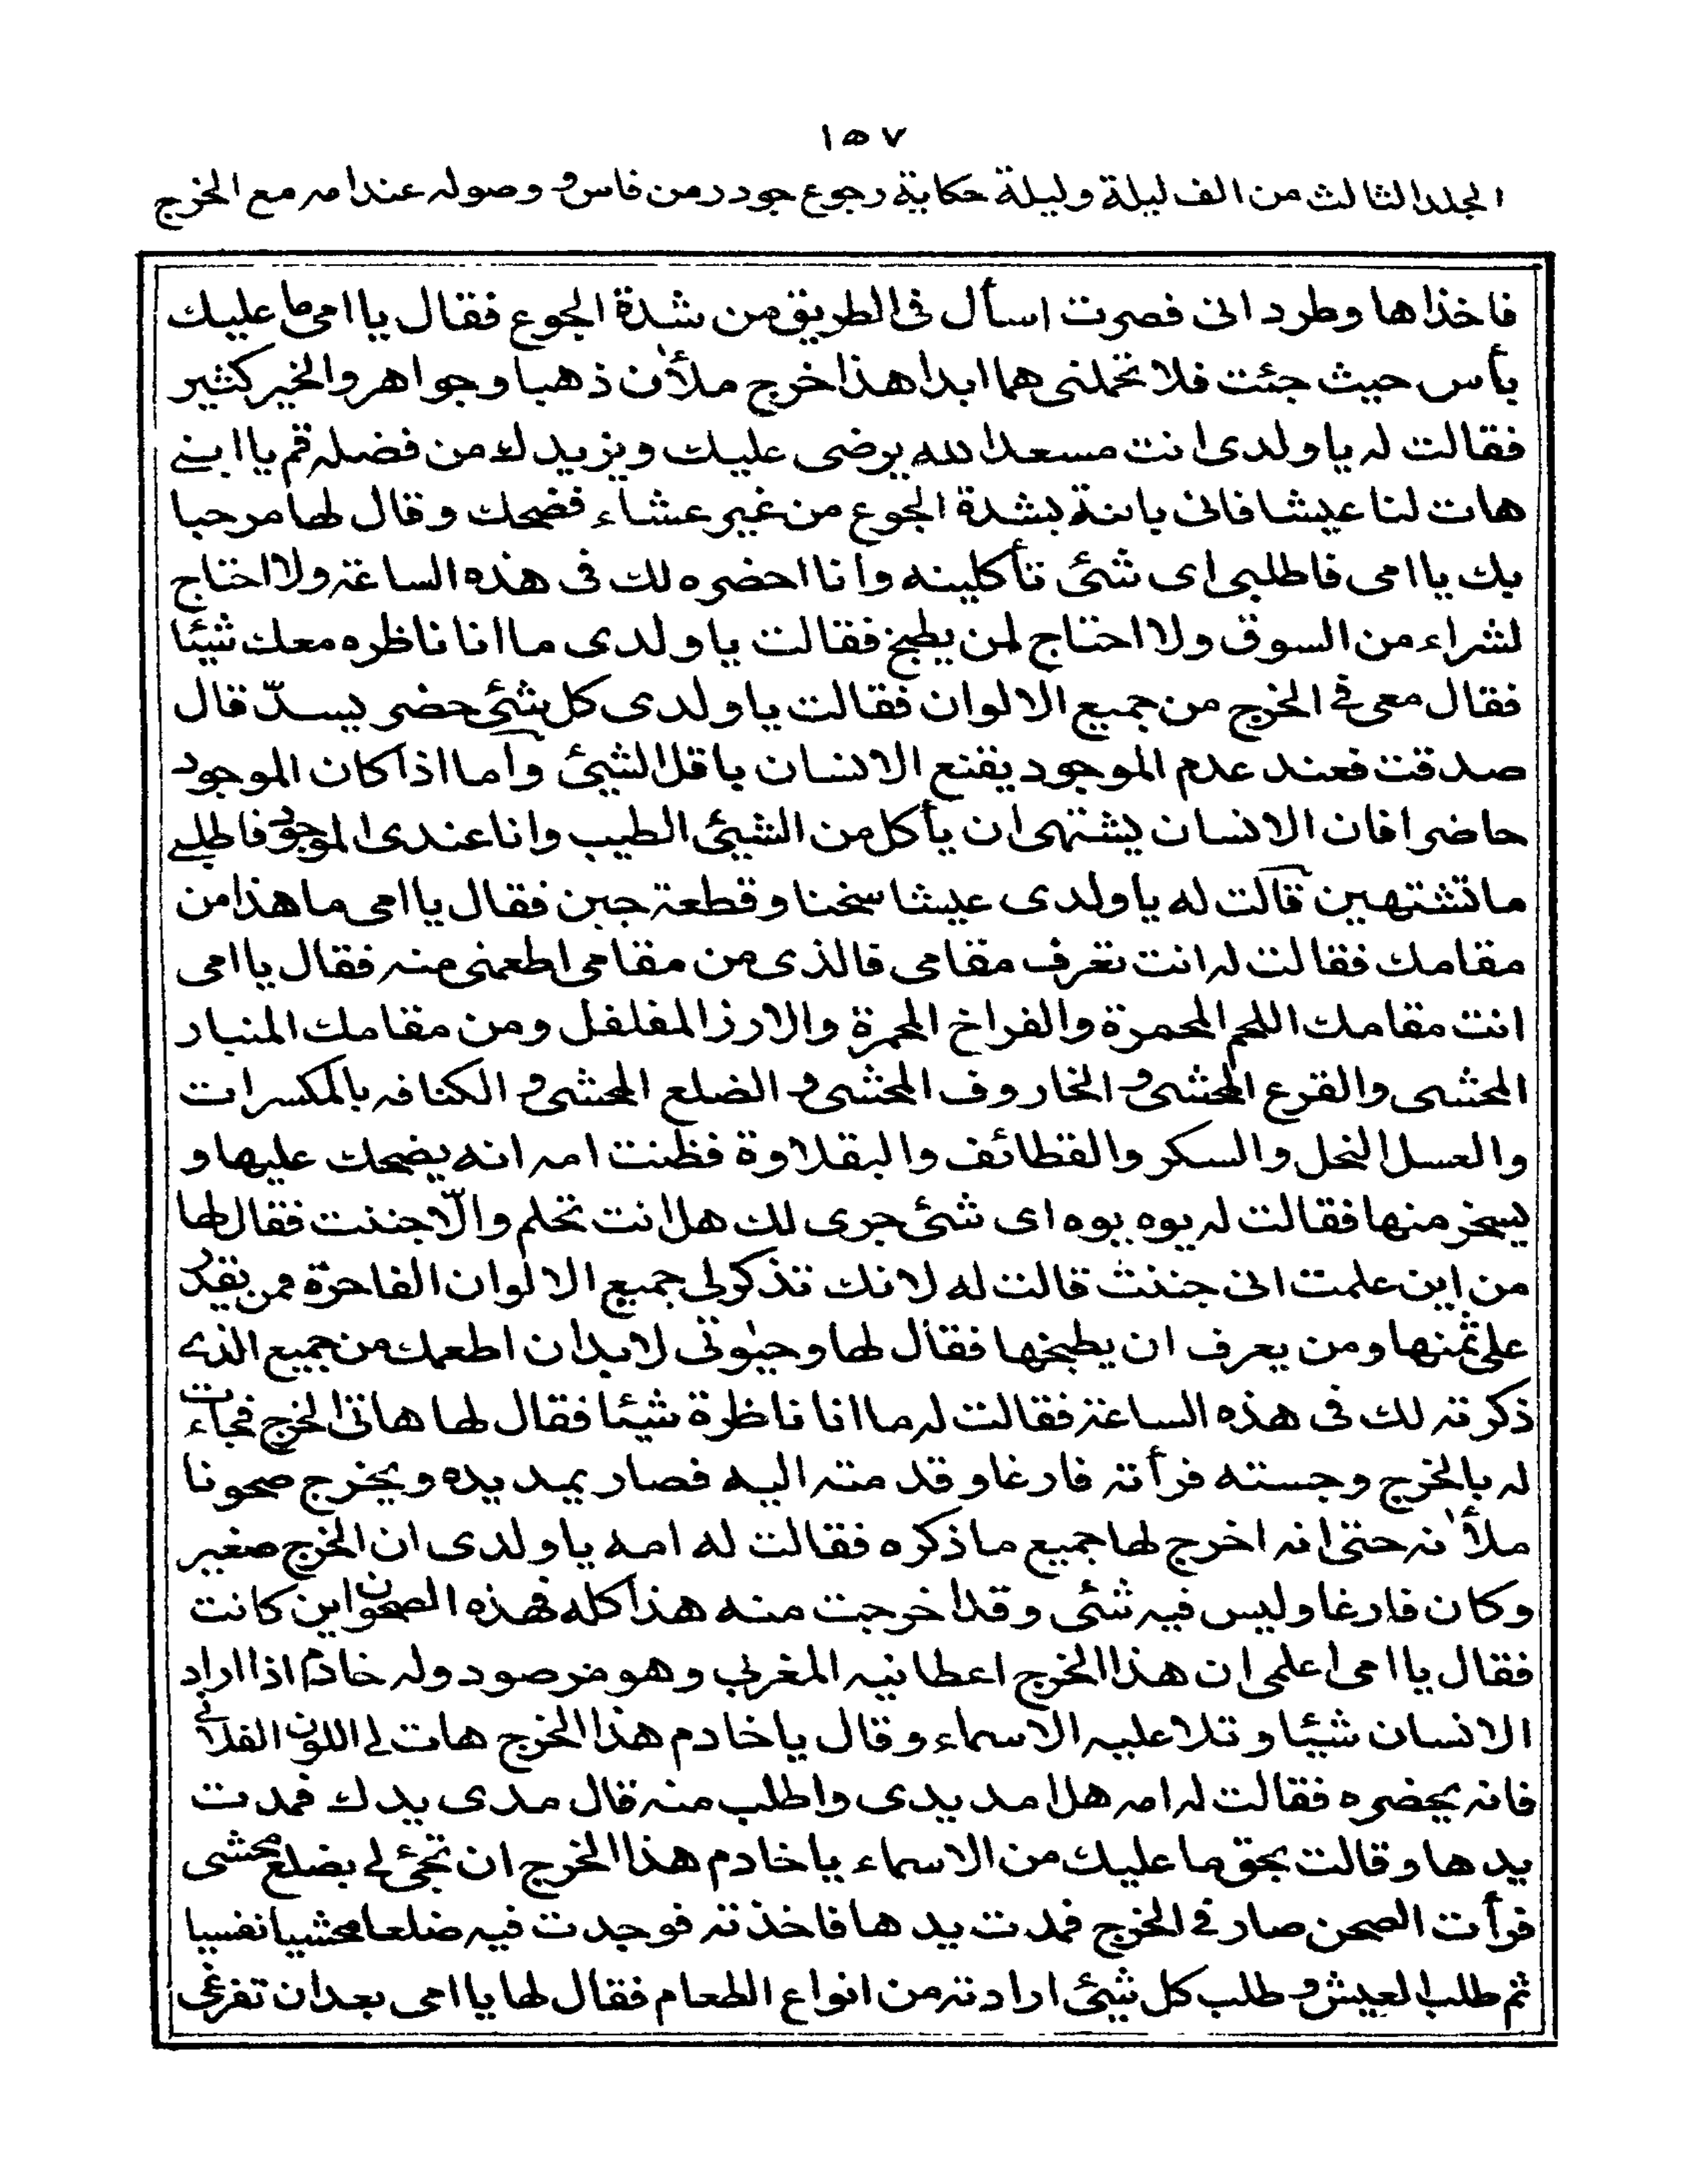 ١٥٧
المجلد الثالث من الف ليلة وليلة حكاية رجوع جودر من فاس و وصوله عند امه مع الخرج
فاخذاها وطرداني فصرت اسأل في الطريق من شدة الجوع فقال يا امي ما عليك
بأس حيث جئت فلا تحملني هما ابدا هذا خرج ملأن ذهبا وجواهر والخير كثير
فقالت له يا ولدي انت مسعد الله يرضى عليك ويزيدك من فضله قم يا ابني
هات لنا عيشا فاني بائتة بشدة الجوع من غير عشاء فضحك وقال لها مرحبا
بك يا امي فاطلبي اى شئ تأكلينه وانا احضره لك في هذه الساعة ولا احتاج
لشراء من السوق ولا احتاج لمن يطبخ فقالت يا ولدي ما انا ناظره معك شيئا
فقال معي في الخرج من جميع الالوان فقالت يا ولدى كل شئ حضر يسدّ قال
صدقت فعند عدم الموجود يقنع الانسان باقل الشيئ وأما اذا كان الموجود
حاضرا فان الانسان يشتهى ان يأكل من الشيئ الطيب وانا عندى الموجود فاطلبي
ما تشتهين قالت له يا ولدى عيشا سخنا وقطعة جبن فقال يا امى ما هذا من
مقامك فقالت له انت تعرف مقامي فالذى من مقامي اطعمنى منه فقال يا امى
انت مقامك اللحم المحمرة والفراخ المحمرة والارز المفلفل ومن مقامك المنبار
المحشى والقرع المحشى و الخاروف المحشى و الضلع المحشى و الكنافه بالمكسرات
والعسل النحل والسكر والقطائف والبقلاوة فظنت امه انه يضحك عليها و
يسخر منها فقالت له يوه يوه اى شئ جرى لك هل انت تحلم والّا جننت فقال لها
من اين علمت انى جننت قالت له لانك تذكر لي جميع الالوان الفاخرة فمن يقدر
على ثمنها ومن يعرف ان يطبخها فقال لها وحيٰوتى لابد ان اطعمك من جميع الذى
ذكرته لك فى هذه الساعة فقالت له ما انا ناظرة شيئا فقال لها هاتى الخرج فجاءت
له بالخرج وجسته فرأته فارغا وقدمته اليه فصار يمد يده ويخرج صحونا
ملأنه حتى انه اخرج لها جميع ما ذكره فقالت له امه يا ولدى ان الخرج صغير
وكان فارغا وليس فيه شئى وقد اخرجت منه هذا كله فهذه الصحون اين كانت
فقال يا امى اعلمى ان هذا الخرج اعطانيه المغربى وهو مرصود وله خادم اذا اراد
الانسان شيئا وتلا عليه الاسماء وقال يا خادم هذا الخرج هات لي اللون الفلانى
فانه يحضره فقالت له امه هل امد يدى واطلب منه قال مدى يدك فمدت
يدها وقالت بحق ما عليك من الاسماء يا خادم هذا الخرج ان تجئ لي بضلع محشى
فرأت الصحن صار في الخرج فمدت يدها فاخذته فوجدت فيه ضلعا محشيا نفسيا
ثم طلب العيش و طلب كل شيئ ارادته من انواع الطعام فقال لها يا امى بعد ان تفرغى